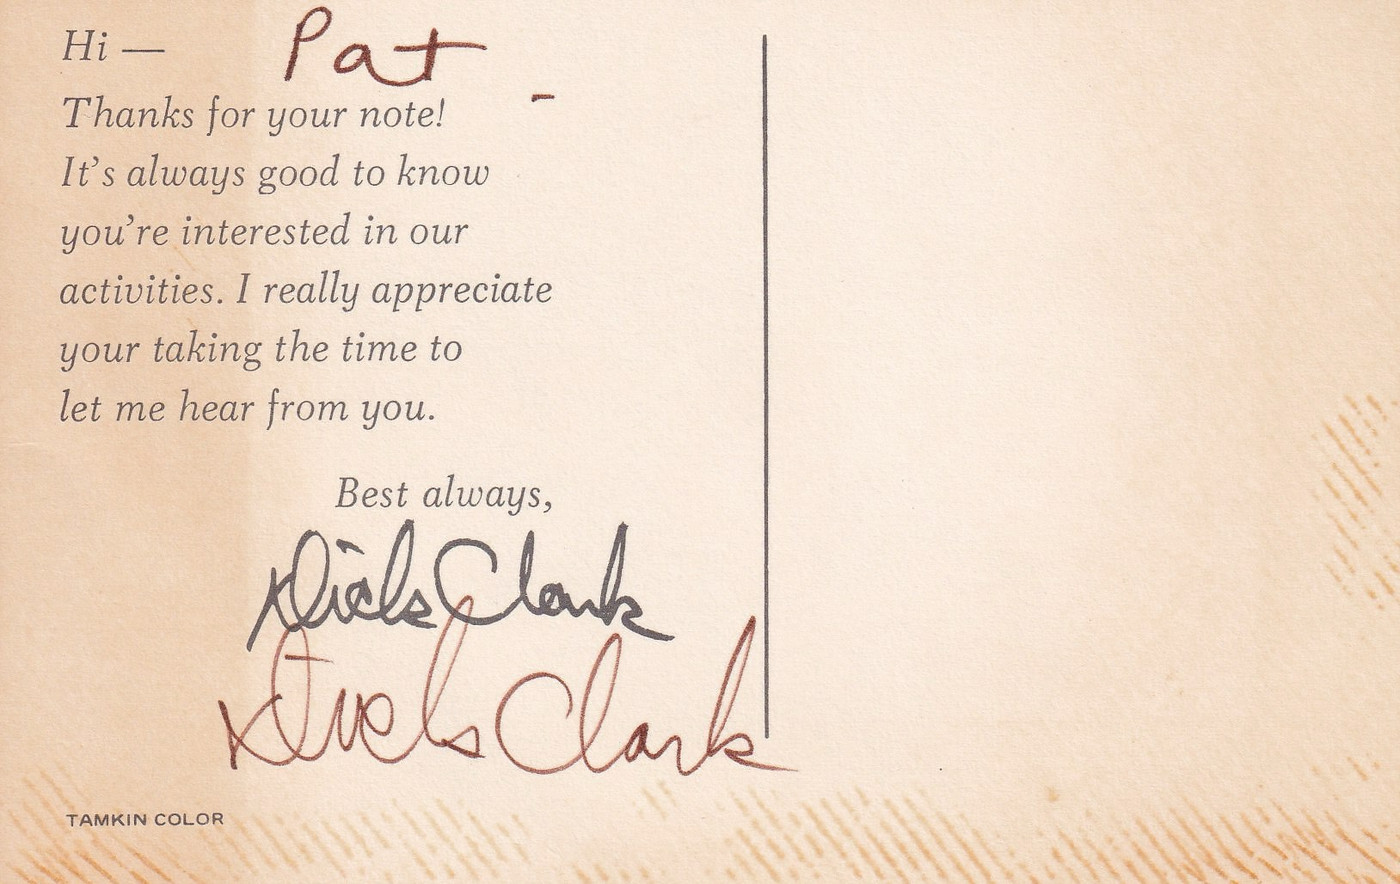 Hi — Pat -
Thanks for your note!
It's always good to know
you're interested in our
activities. I really appreciate
your taking the time to
let me hear from you.
Best always,
Dick Clark
Dick Clark
TAMKIN COLOR